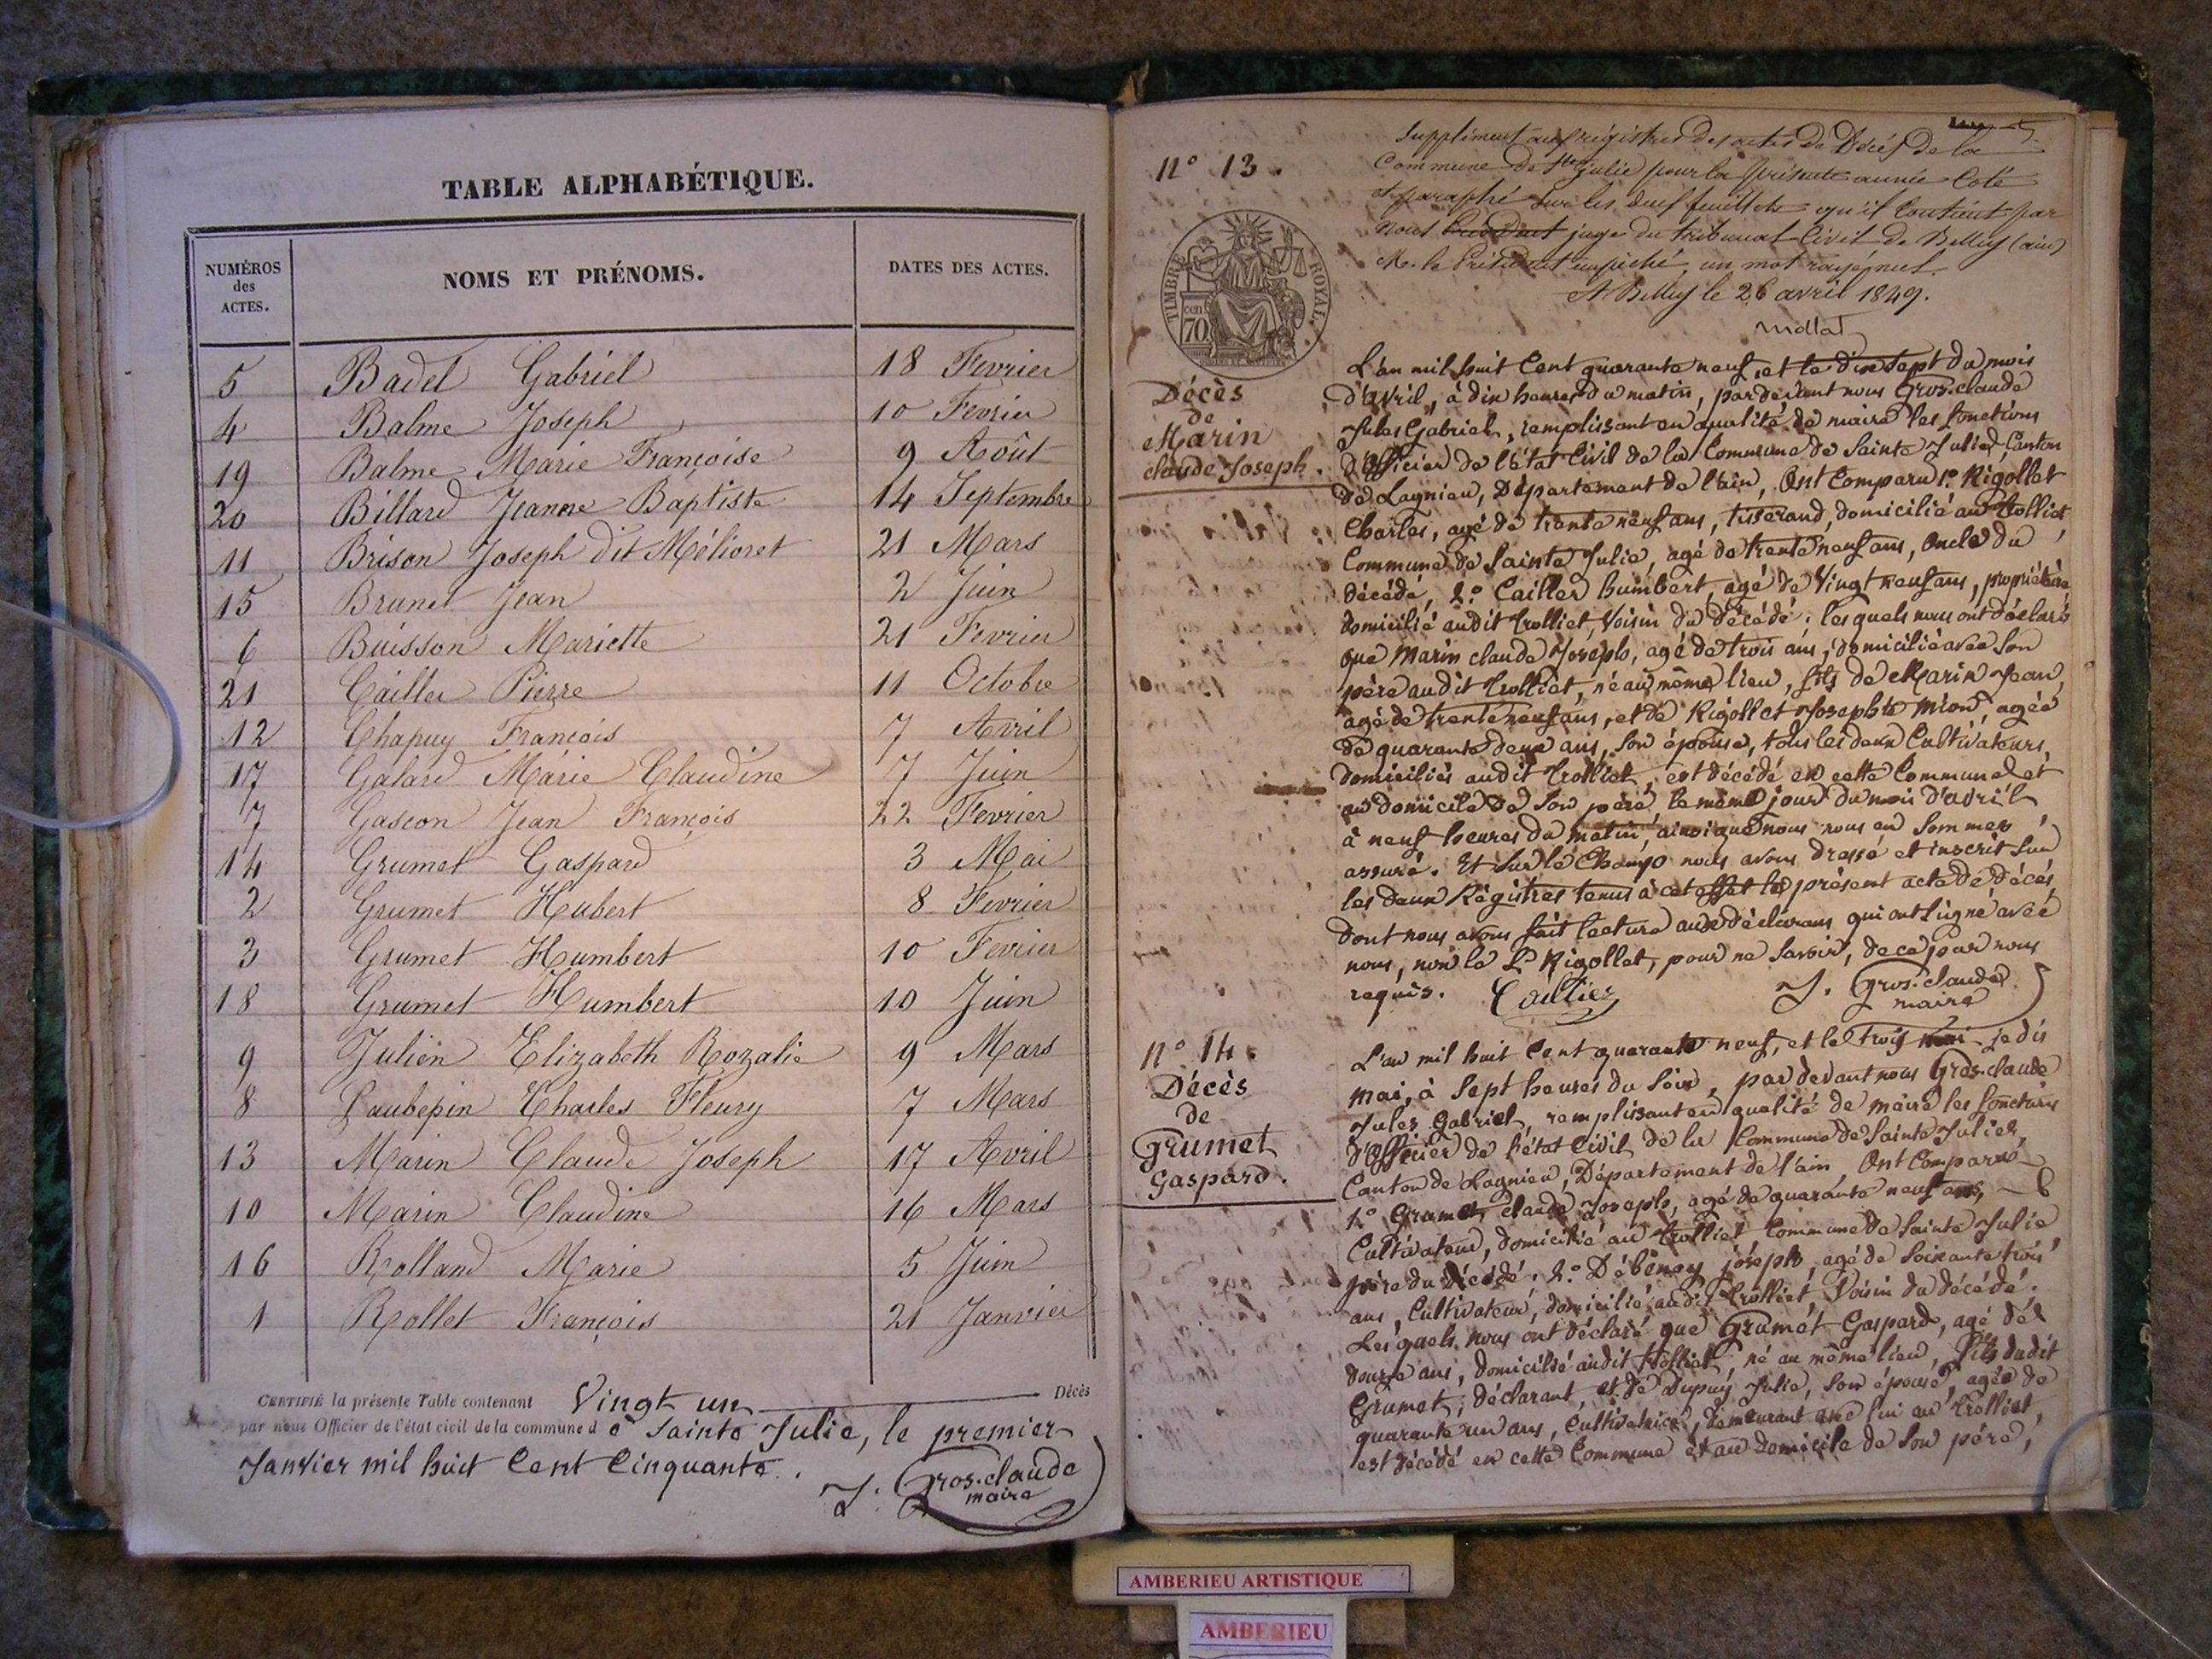 TABLE ALPHABÉTIQUE.
NUMÉROS des ACTES. NOMS ET PRÉNOMS. DATES DES ACTES.
5 Badel Gabriel 18 Fevrier
4 Balme Joseph 10 Fevrier
19 Balme Marie Françoise 9 Août
20 Billard Jeanne Baptiste 14 Septembre
11 Brison Joseph dit Mélioret 21 Mars
15 Brunet Jean 2 Juin
6 Buisson Mariette 21 Fevrier
21 Cailler Pierre 11 Octobre
12 Chapuy François 7 Avril
17 Galard Marie Claudine 7 Juin
7 Gascon Jean François 22 Fevrier
14 Grumet Gaspard 3 Mai
2 Grumet Hubert 8 Fevrier
3 Grumet Humbert 10 Fevrier
18 Grumet Humbert 10 Juin
9 Julien Elizabeth Rozalie 9 Mars
8 Laubepin Charles Fleury 7 Mars
13 Marin Claude Joseph 17 Avril
10 Marin Claudine 16 Mars
16 Rolland Marie 5 Juin
1 Rollet François 21 Janvier
CERTIFIÉ la présente Table contenant Vingt un Décès
par nous Officier de l'état civil de la commune d e Sainte Julie, le premier
Janvier mil huit Cent Cinquante.
J. Gros.claude
maire
Supplément aux régistres des actes de Décès de la
Commune de Ste Julie pour la présente année Coté
et paraphé sur les deux feuillets qu'il Contient par
nous President juge du tribunal Civil de Belley (ain)
M. le Président empêché, un mot rayé nul.
A Belley le 26 avril 1849.
Mollat
N° 13.
TIMBRE ROYAL.
cen. 70.
Décès
de
Marin
claude Joseph.
L'an mil huit Cent quarante neuf, et le dix sept du mois
d'avril, à dix heures du matin, pardevant nous Gros.claude
Jules Gabriel, remplissant en qualité de maire les fonctions
d'Officier de l'état Civil de la Commune de Sainte Julie, Canton
de Lagnieu, Département de l'ain, Ont Comparu 1.° Rigollet
Charles, agé de trente neuf ans, tisserand, domicilié au Trolliet,
Commune de Sainte Julie, agé de trente neuf ans, Oncle du
décédé, 2.° Cailler humbert, agé de Vingt neuf ans, propriétaire,
domicilié audit Trolliet, Voisin du décédé; lesquels nous ont déclaré
que Marin claude Joseph, agé de trois ans, domicilié avec Son
père audit Trolliet, né au même lieu, fils de Marin Jean,
agé de trente neuf ans, et de Rigollet Josephte Mion, agée
de quarante deux ans, Son épouse, tous les deux Cultivateurs,
domiciliés audit Trolliet, est décédé en cette Commune et
au domicile de Son père, le même jour du mois d'avril,
à neuf heures du matin, ainsi que nous nous en Sommes
assuré. Et Sur le Champ nous avons dressé et inscrit Sur
les deux Régistres tenus à cet effet le présent acte de décès,
dont nous avons fait lecture aux déclarans qui ont Signé avec
nous, non le Sr Rigollet, pour ne Savoir, de ce par nous
requis. Caillier J. Gros.claude
maire
N° 14.
Décès
de
Grumet
Gaspard.
L'an mil huit Cent quarante neuf, et le trois mai je dis
mai, à Sept heures du Soir, pardevant nous Gros.claude
Jules Gabriel, remplissant en qualité de maire les fonctions
d'Officier de l'état Civil de la Commune de Sainte Julie,
Canton de Lagnieu, Département de l'ain, Ont Comparu
1.° Grumet claude Joseph, agé de quarante neuf ans,
Cultivateur, domicilié au Trolliet, Commune de Sainte Julie,
père du décédé. 2.° Débeney joseph agé de Soixante trois
ans, Cultivateur, domicilié audit Trolliet, Voisin du décédé.
Lesquels nous ont déclaré que Grumet Gaspard, agé de
douze ans, domicilié audit Trolliet, né au même lieu, fils dudit
Grumet, déclarant, et de Dupuy Julie, Son épouse, agée de
quarante un ans, Cultivatrice, demeurant avec lui au Trolliet,
est décédé en cette Commune et au domicile de Son père,
AMBERIEU ARTISTIQUE
AMBERIEU